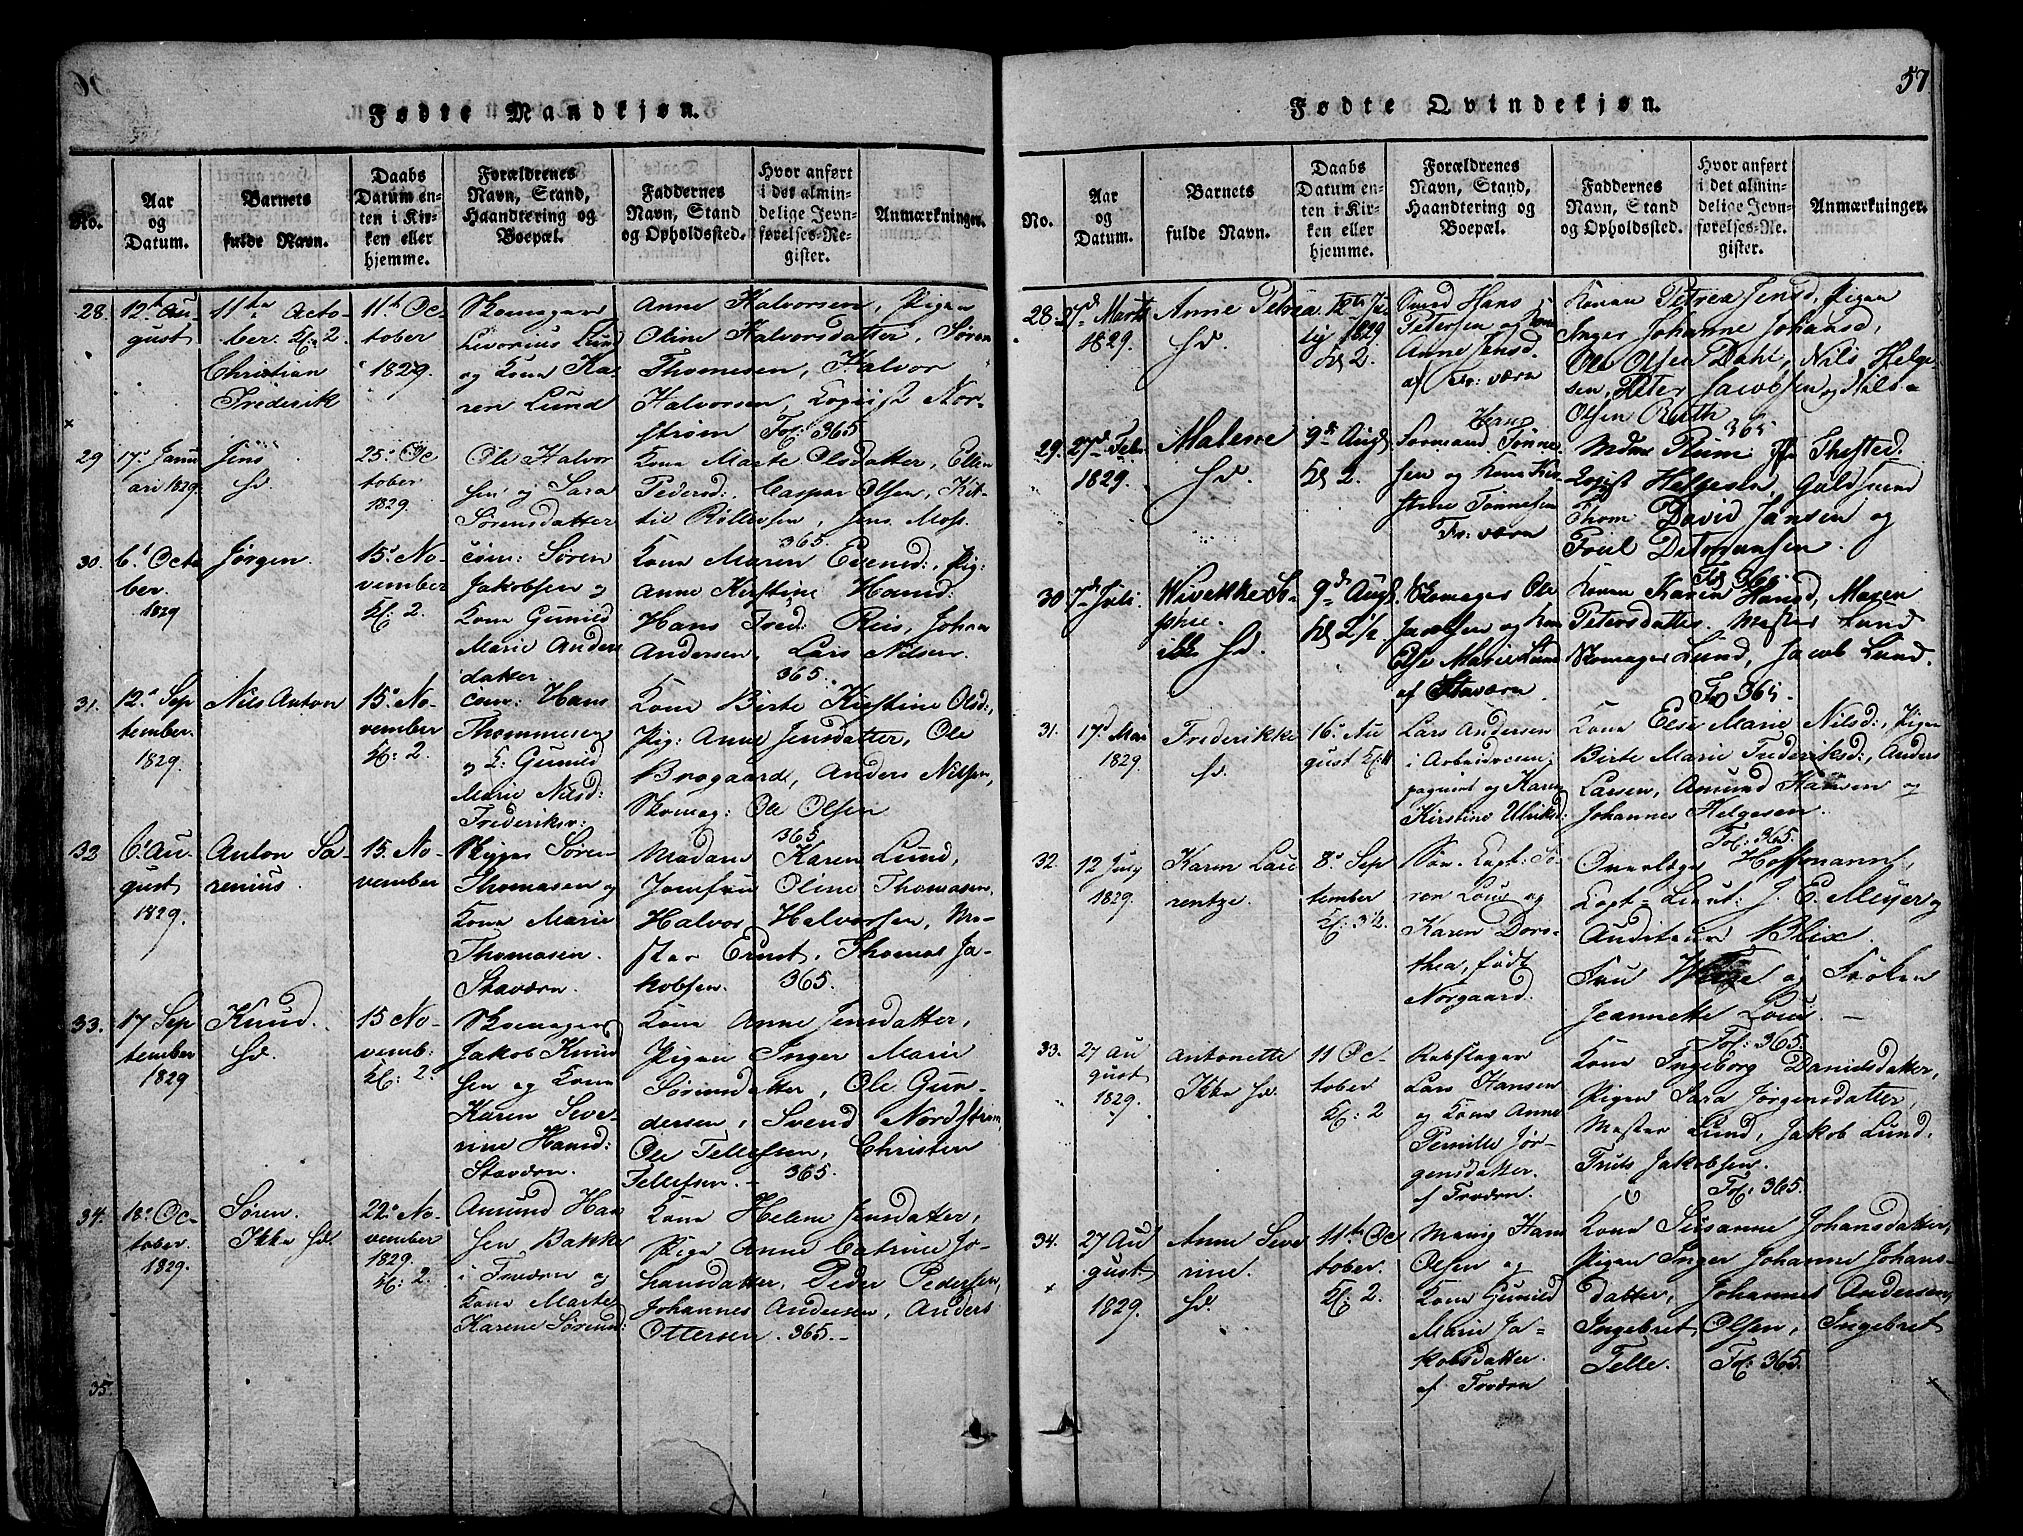 57
Fødte Mandkjøn.
No.
Aar
og
Datum.
Barnets
fulde Navn.
Daabs
Datum en-
ten i Kir-
ken eller
hjemme.
Forældrenes
Navn, Stand,
Haandtering og
Boepæl.
Faddernes
Navn, Stand
og Opholdssted.
Hvor anført
i det almin-
delige Jevn-
førelses-Re-
gister.
Anmærkninger.
28.
12te Au-
gust
11te Octo-
ber. Kl. 2.
Christian
Frederik
11te Oc-
tober
1829.
Skomager
Liverius Lund
og Kone Ka-
ren Lund
Anne Halvorsen, Pigen
Oline Halvorsdatter, Søren
Thomesen, Halvor
Halvorsen, Logiist Nor-
strøm Fol: 365
29
17. Janu
ari 1829.
Jens
Hd.
25. Oc
tober
1829.
Ole Halvor
sen og Sara
Sørensdatter
Kone Marte Olsdatter, Ellen
Pedersd:, Caspar Olsen, Kit-
til Rollefsen, Jens Moss.
365
30.
6. Octo
ber.
1829
Jørgen
15. No-
vember
Kl: 2.
com: Søren
Jakobsen og
Kone Gunild
Marie Anders
datter
Kone Maren Evensd:, Pig:
Anne Kirstine Hansd:
Hans Fred: Reis, Johan
Andersen, Lars Nilsen.
365.
31.
12. Sep
tember.
1829.
Nils Anton
15. No-
vember
Kl: 2.
com: Hans
Thommesen
og K: Gunild
Marie Nilsd:
Frederiksv:
Kone Birte Kirstine Olsd:,
Pig: Anne Jensdatter, Ole
Brogaard, Anders Nilsen,
Skomag: Ole Olsen
365
32
6. Au-
gust
1829.
Anton Sa-
renius.
15. No-
vember
Skipper Søren
Thomasen og
Kone Marie
Thomasen.
Staværn.
Madam Karen Lund,
Jomfru Oline Thomasen,
Halvor Halvorsen, Me-
ster Ernst, Thomas Ja-
kobsen. 365.
33.
17 Sep
tember
1829
Knud.
Hd.
15 No-
vemb:
Kl: 2.
Skomager
Jakob Knud
sen og Kone
Karen Seve-
rine Hansd:
Staværn.
Kone Anne Jensdatter,
Pigen Inger Marie
Sørensdatter, Ole Gun-
dersen, Svend Nordstrøm,
Ole Tellefsen, Christen
Tellefsen. - 365.
34.
18. Oc-
tober.
1829.
Søren.
Ikke Hd.
22. No-
vember
1829.
Kl: 2.
Amund Han
sen Bakke
i Fredærn og
Kone Marte
Karene Sørensd:
Kone Helene Jensdatter,
Pige Anne Catrine Jo-
hansdatter, Peder Pedersen,
Johannes Andersen, Anders
Ottersen. 365.
35.
Fødte Qvindekjøn.
No.
Aar
og
Datum.
Barnets
fulde Navn.
Daabs
Datum en-
ten i Kir-
ken eller
hjemme.
Forældrenes
Navn, Stand,
Haandtering og
Boepæl.
Faddernes
Navn, Stand
og Opholdssted.
Hvor anført
i det almin-
delige Jevn-
førelses-Re-
gister.
Anmærkninger.
28.
27d Marts
1829.
Anne Petrea
Hd.
12te Ju-
ly 1829.
Kl 2.
Hans
Petersen og Kone
Anne Jensd.
af Fr: værn
Konen Petrea Jensd, Pigen
Inger Johanne Johansd,
Ole Olsen Dahl, Nils Helge-
sen, Peter Jacobsen og Nils
Olsen Ruth
365
29.
27d Febr.
1829.
Malene
Hd.
9d Aug
Kl 2.
Hans
Tønne-
sen og Kone Kir-
stine Tønnesen
Fr: værn
Mdme Rum, Thysted.
Logist Helgesen, Guldsmed
Thom David Jansen og
Poul Detmansen.
Fol 365
30
7d Juli
Wivekke So-
phie
Hd.
9d Aug
Kl 2 1/2
Skomager Ole
Jacobsen og Kone
Else Marie Lund
af Staværn
Konen Karen Hansd, Maren
Petersdatter. Mester Lund
Skomager Lund, Jacob Lund.
Fol 365
31.
17d Mai
1829.
Frederikke
Hd.
16. Au
gust Kl:
Lars Andersen
i Arbeidscom-
pagniet og Karen
Kirstine Ulriksd:
Kone Else Marie Nilsd:, Pigen
Birte Marie Frederiksd:, Anders
Larsen, Amund Hansen og
Johannes Helgesen.
Fol: 365
32.
12 July
1829.
Karen Lau
rentze.
8. Sep
tember
Kl: 3½.
Søv. Capt: Sø-
ren Lous og
Karen Doro-
thea, født
Norgaard.
Overlæge Hoffmann,
Capt-Lieut: J. E. Meyer og
Auditeur Blix.
Fru og Frøken
Jeannette Lous. —
Fol: 365.
33.
27 Au
gust
1829.
Antonette
Ikke Hd.
11 Oc-
tober
Kl: 2
Rebslager
Lars Hansen
og Kone Anne
Pernille Jør-
gensdatter.
af Fredærn.
Kone Ingeborg Danielsdatter,
Pigen Sara Jørgensdatter,
Mester Lund, Jakob Lund.
Truls Jakobsen.
Fol: 365.
34.
27 Au
gust
1829.
Anne Seve
rine.
Hd.
11te Oc
tober.
Kl: 2.
Hans
Olsen og
Kone Gunild
Marie Ja-
kobsdatter.
af Fredærn
Kone Susanne Johansdatter,
Pigen Inger Johanne Johans-
datter, Johannes Andersen,
Ingebret Olsen, Ingebret
Telle. Fol: 365.